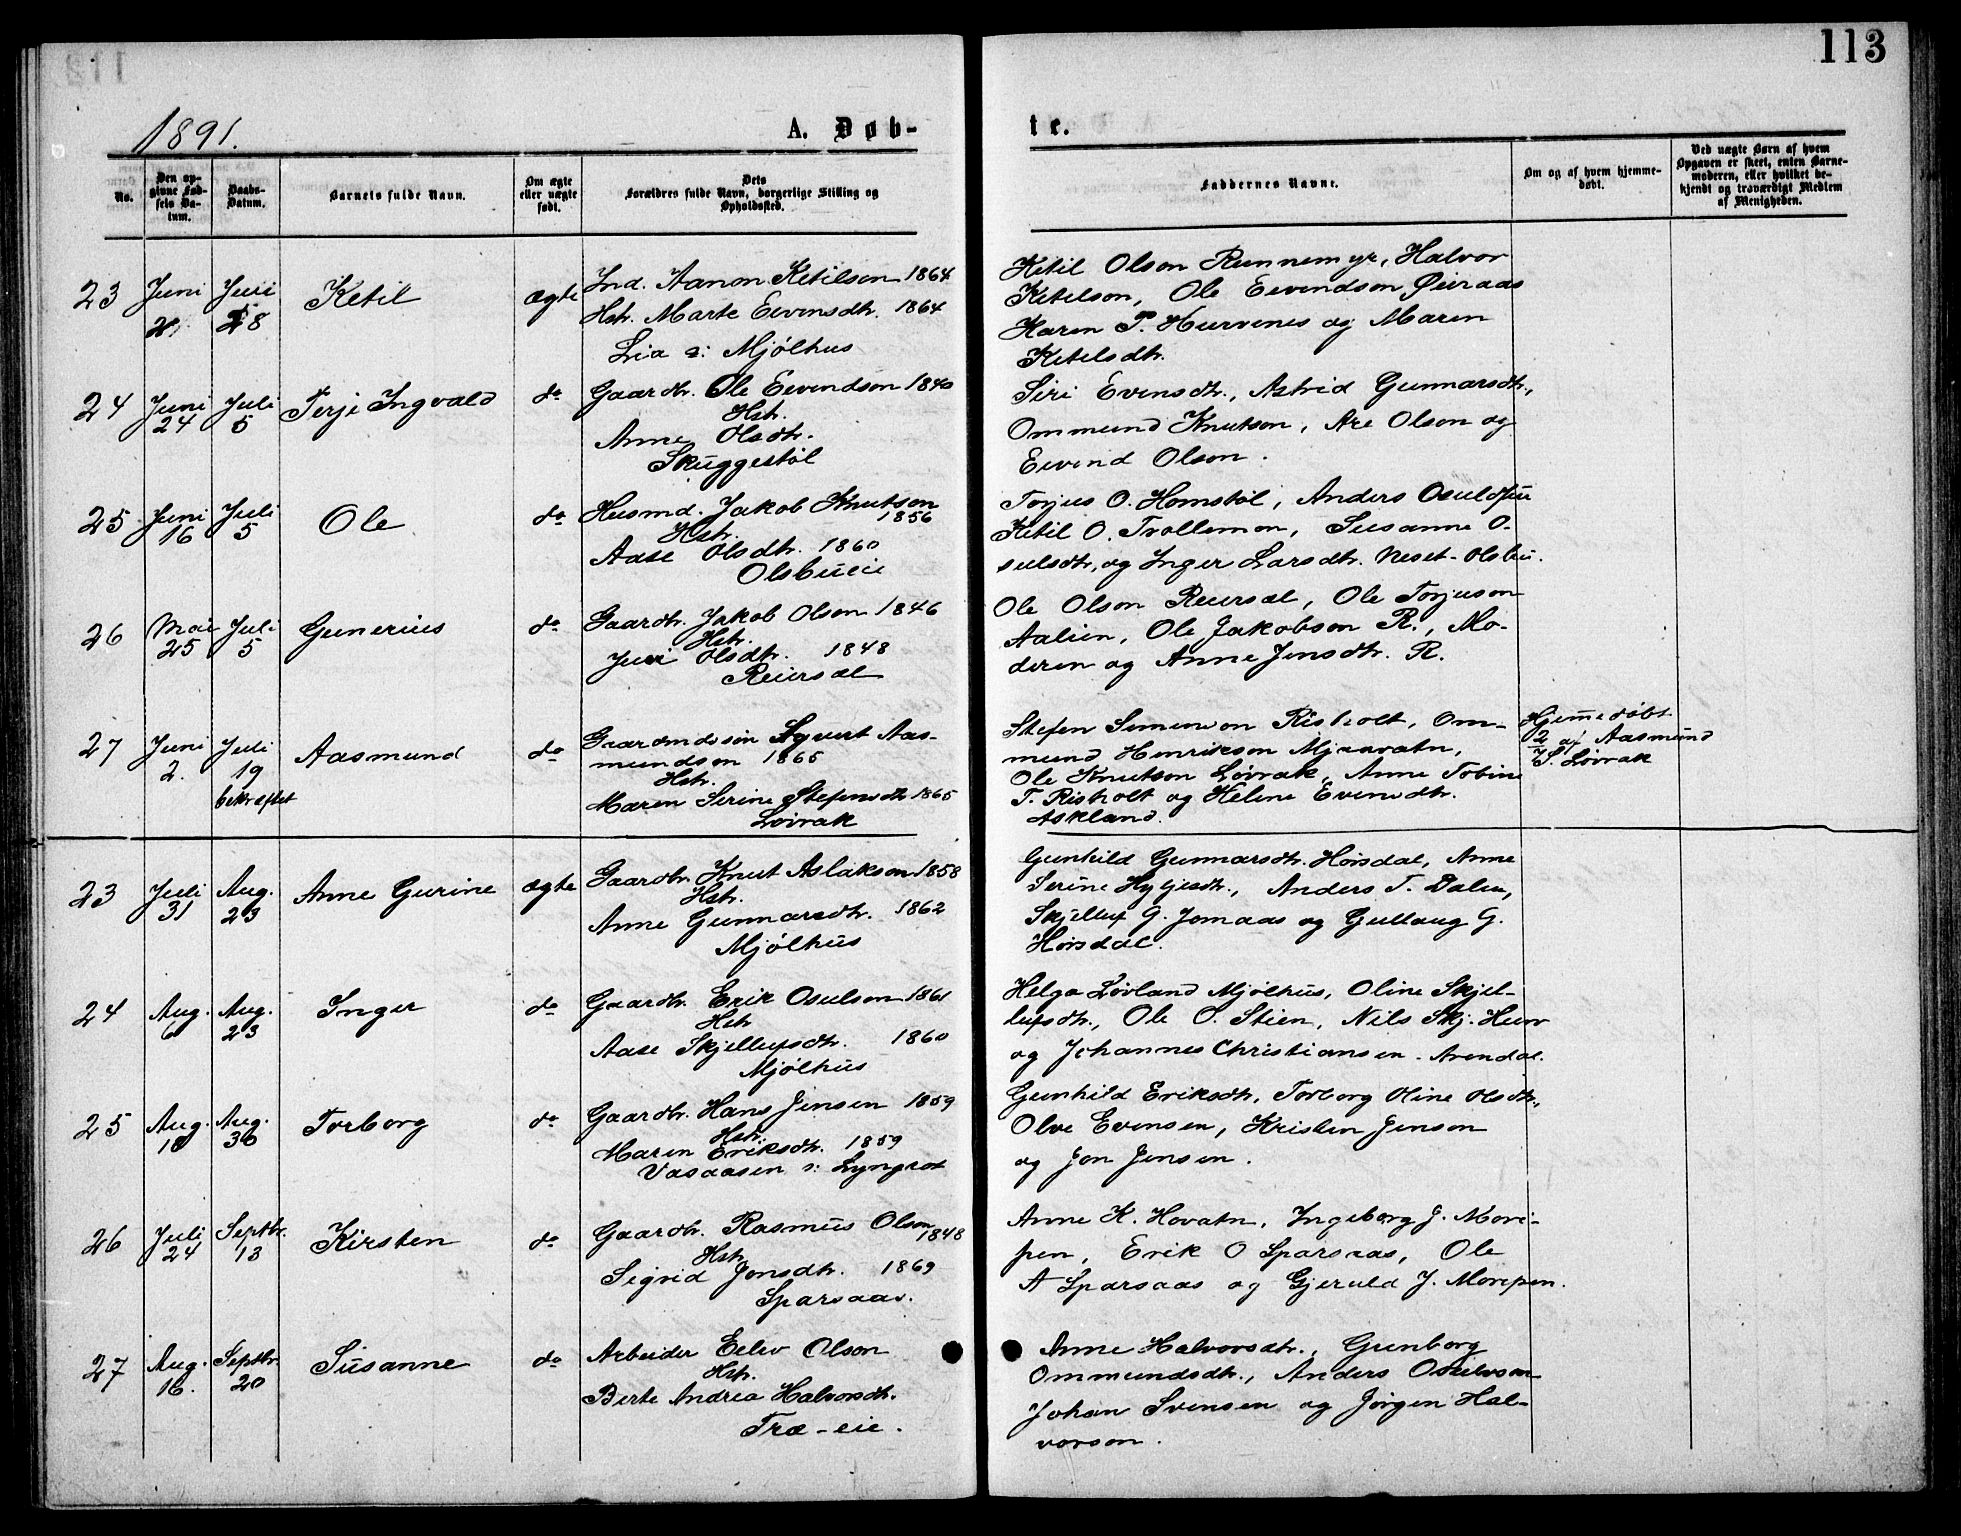 113
1891.
A. Døb-
te.
No.
Den op-
givne Fød-
sels Da-
tum.
Daabs-
Datum.
Barnets fulde Navn.
Om ægte
eller uægte
født.
Dets
Forældres fulde Navn, borgerlige Stilling og
Opholdssted.
Faddernes Navne.
Om og af hvem hjemme-
døbt.
Ved uægte Børn af hvem
Opgaven er skeet, enten Barne-
moderen, eller hvilket be-
kjendt og troværdigt Medlem
af Menigheden.
23
Juni
Juni
28
Ketil
ægte
Ind. Aanon Ketilson 1864
Hstr. Marte Eivensdtr. 1864
Lia s: Mjølhus
Ketil Olson Runnemyr, Halvor
Ketelson, Ole Eevendson Øiuraas
Karen T. Hurvenes og Maren
Ketelsdtr.
24
Juni
24
Juli
5
Terje Ingvald
do
Gaardbr. Ole Eevendson 1840
Hstr.
Anne Olsdtr.
Skuggestøl
Siri Evensdtr., Astrid Gunnarsdtr.,
Ommund Knutson, Are Olson og
Eivend Olson.
25
Juni
16
Juli
5
Ole
do
Husmd. Jakob Knutson
1856
Hstr.
Aase Olsdtr. 1860
Olsbueie
Torjus O. Homstøl, Anders
Ketil O. Trollemon, Susanne O-
sulsdtr, og Inger Larsdtr. Neset-Olsbu.
26
Mai
25
Juli
5
Gunerius
do
Gaardbr. Jakob Olson 1846
Hstr.
Juri Olsdtr. 1848
Reiersøl
Ole Olson Reiersøl, Ole Torjuson
Aalien, Ole Jakobson R., Mo-
deren og Anne Jensdtr. R.
27
Juni
2.
Juli
19
bekræftet
Aasmund
do
Gaardmdssøn Syvert Aas-
mundson 1865
Hstr.
Maren Serine Stefensdtr 1865
Løvrak
Stefen Simenson Risholt, Om-
mund Henrikson Mjaavatn,
Ole Knutson Løvrak, Anne Tobine
T. Risholt og Helene Evensdtr.
Askland.
Hjemmedøbt
2/7 af Aasmund
S. Løvrak
23
Juli
31
Aug.
23
Anne Gurine
ægte
Gaardbr. Knut Aslakson 1858
Hstr.
Anne Gunnarsdtr. 1862
Mjølhus
Gunhild Gunnarsdtr. Hørsdal, Anne
Serine Hyljesdtr., Anders T. Dalen,
Skjelluf G. Jomaas og Gullaug G.
Hørsdal.
24
Aug.
6
Aug.
23
Inger
do
Gaardbr. Erik Osulson 1861
Hstr
Aase Skjellufsdtr. 1860
Mjølhus
Helga Løvland Mjølhus, Oline Skjel-
lufsdtr., Ole O. Stien, Nils Skj. Hurv
og Johannes Christiansen. Arendal.
25
Aug.
10
Aug.
30
Torborg
do
Gaardbr. Hans Jensen 1859
Hstr.
Maren Eriksdtr. 1859
Vasaasen s: Lyngrot
Gunhild Eriksdtr, Torborg Oline Olsdtr.,
Olve Evensen, Kristen Jenson
og Jon Jensen.
26
Juli
24
Septbr.
13
Kirsten
do
Gaardbr. Rasmus Olson
1848
Hstr
Sigrid Jonsdtr. 1869
Sparsaas.
Anne K. Hovatn, Ingeborg J. More-
pen, Erik O Sparsaas, Ole
A Sparsaas og Gjeruld J. Morepen.
27
Aug.
16.
Septbr.
20
Susanne
do
Arbeider Eelev Olson
Hstr.
Berte Andrea Halvorsdtr.
Træ-eie.
Anne Halvorsdtr., Gunborg
Ommundsdtr., Anders Osulvson
Johan Svensen og Jørgen Hal-
vorson.